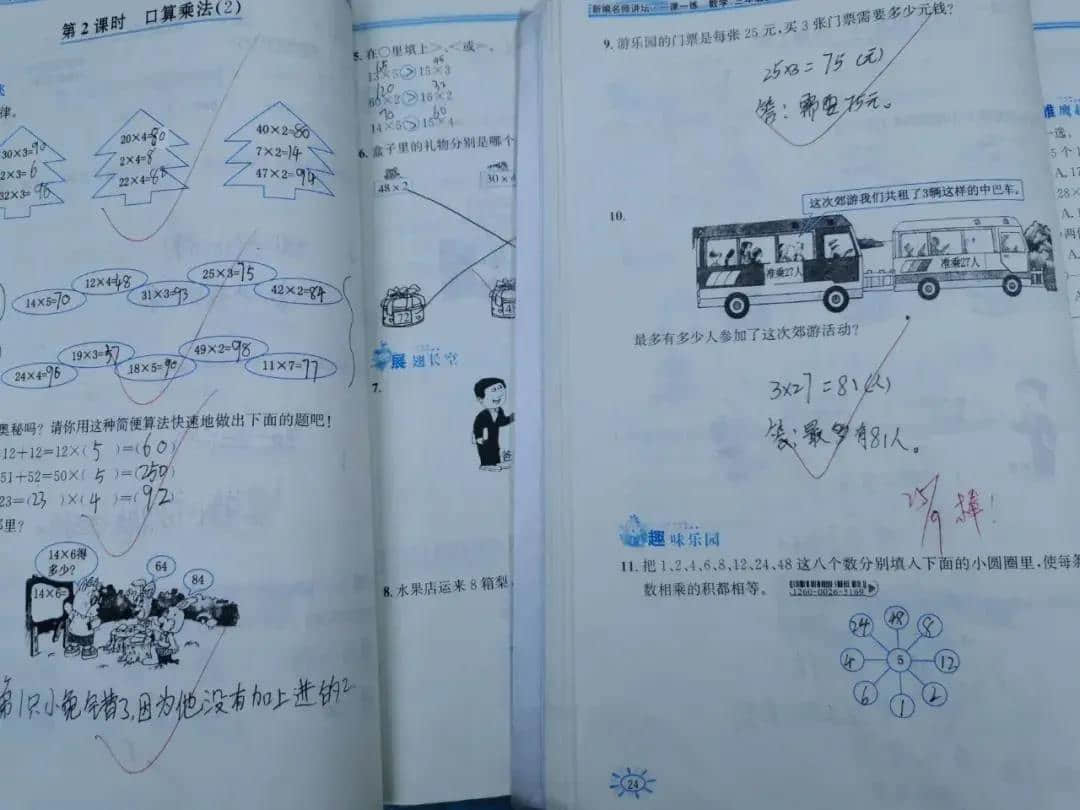 第2课时 口算乘法(2)
律。
30×3=90
2×3=6
32×3=96
20×4=80
2×4=8
22×4=88
40×2=80
7×2=14
47×2=94
14×5=70
12×4=48
31×3=93
25×3=75
42×2=84
24×4=96
19×3=57
18×5=90
49×2=98
11×7=77
奥秘吗?请你用这种简便算法快速地做出下面的题吧!
12+12=12×(5)=(60)
51+52=50×(5)=(250)
23=(23)×(4)=(92)
哪里?
14×6得
多少?
14×6=
64
84
第1只小兔会错了,因为他没有加上进的2
5. 在○里填上>、<或=。
65 45
13×5>15×3
120 32
60×2>16×2
70 60
14×5>15×4
6. 盒子里的礼物分别是哪个
48×2
30×
72
展翅长空
7.
爸
8. 水果店运来8箱梨,
新编名师讲坛·一课一练 数学 三年级
9. 游乐园的门票是每张25元,买3张门票需要多少元钱?
25×3=75(元)
答:需要75元。
10.
这次郊游我们共租了3辆这样的中巴车。
准乘27人
准乘27人
最多有多少人参加了这次郊游活动?
3×27=81(人)
答:最多有81人。
25/9 棒!
趣味乐园
11. 把1、2、4、6、8、12、24、48这八个数分别填入下面的小圆圈里,使每条
数相乘的积都相等。
1260-0026-3169
24
48
8
4
5
12
6
1
2
24
一选。
5个1
A.17
28×
A.1
两位
A.